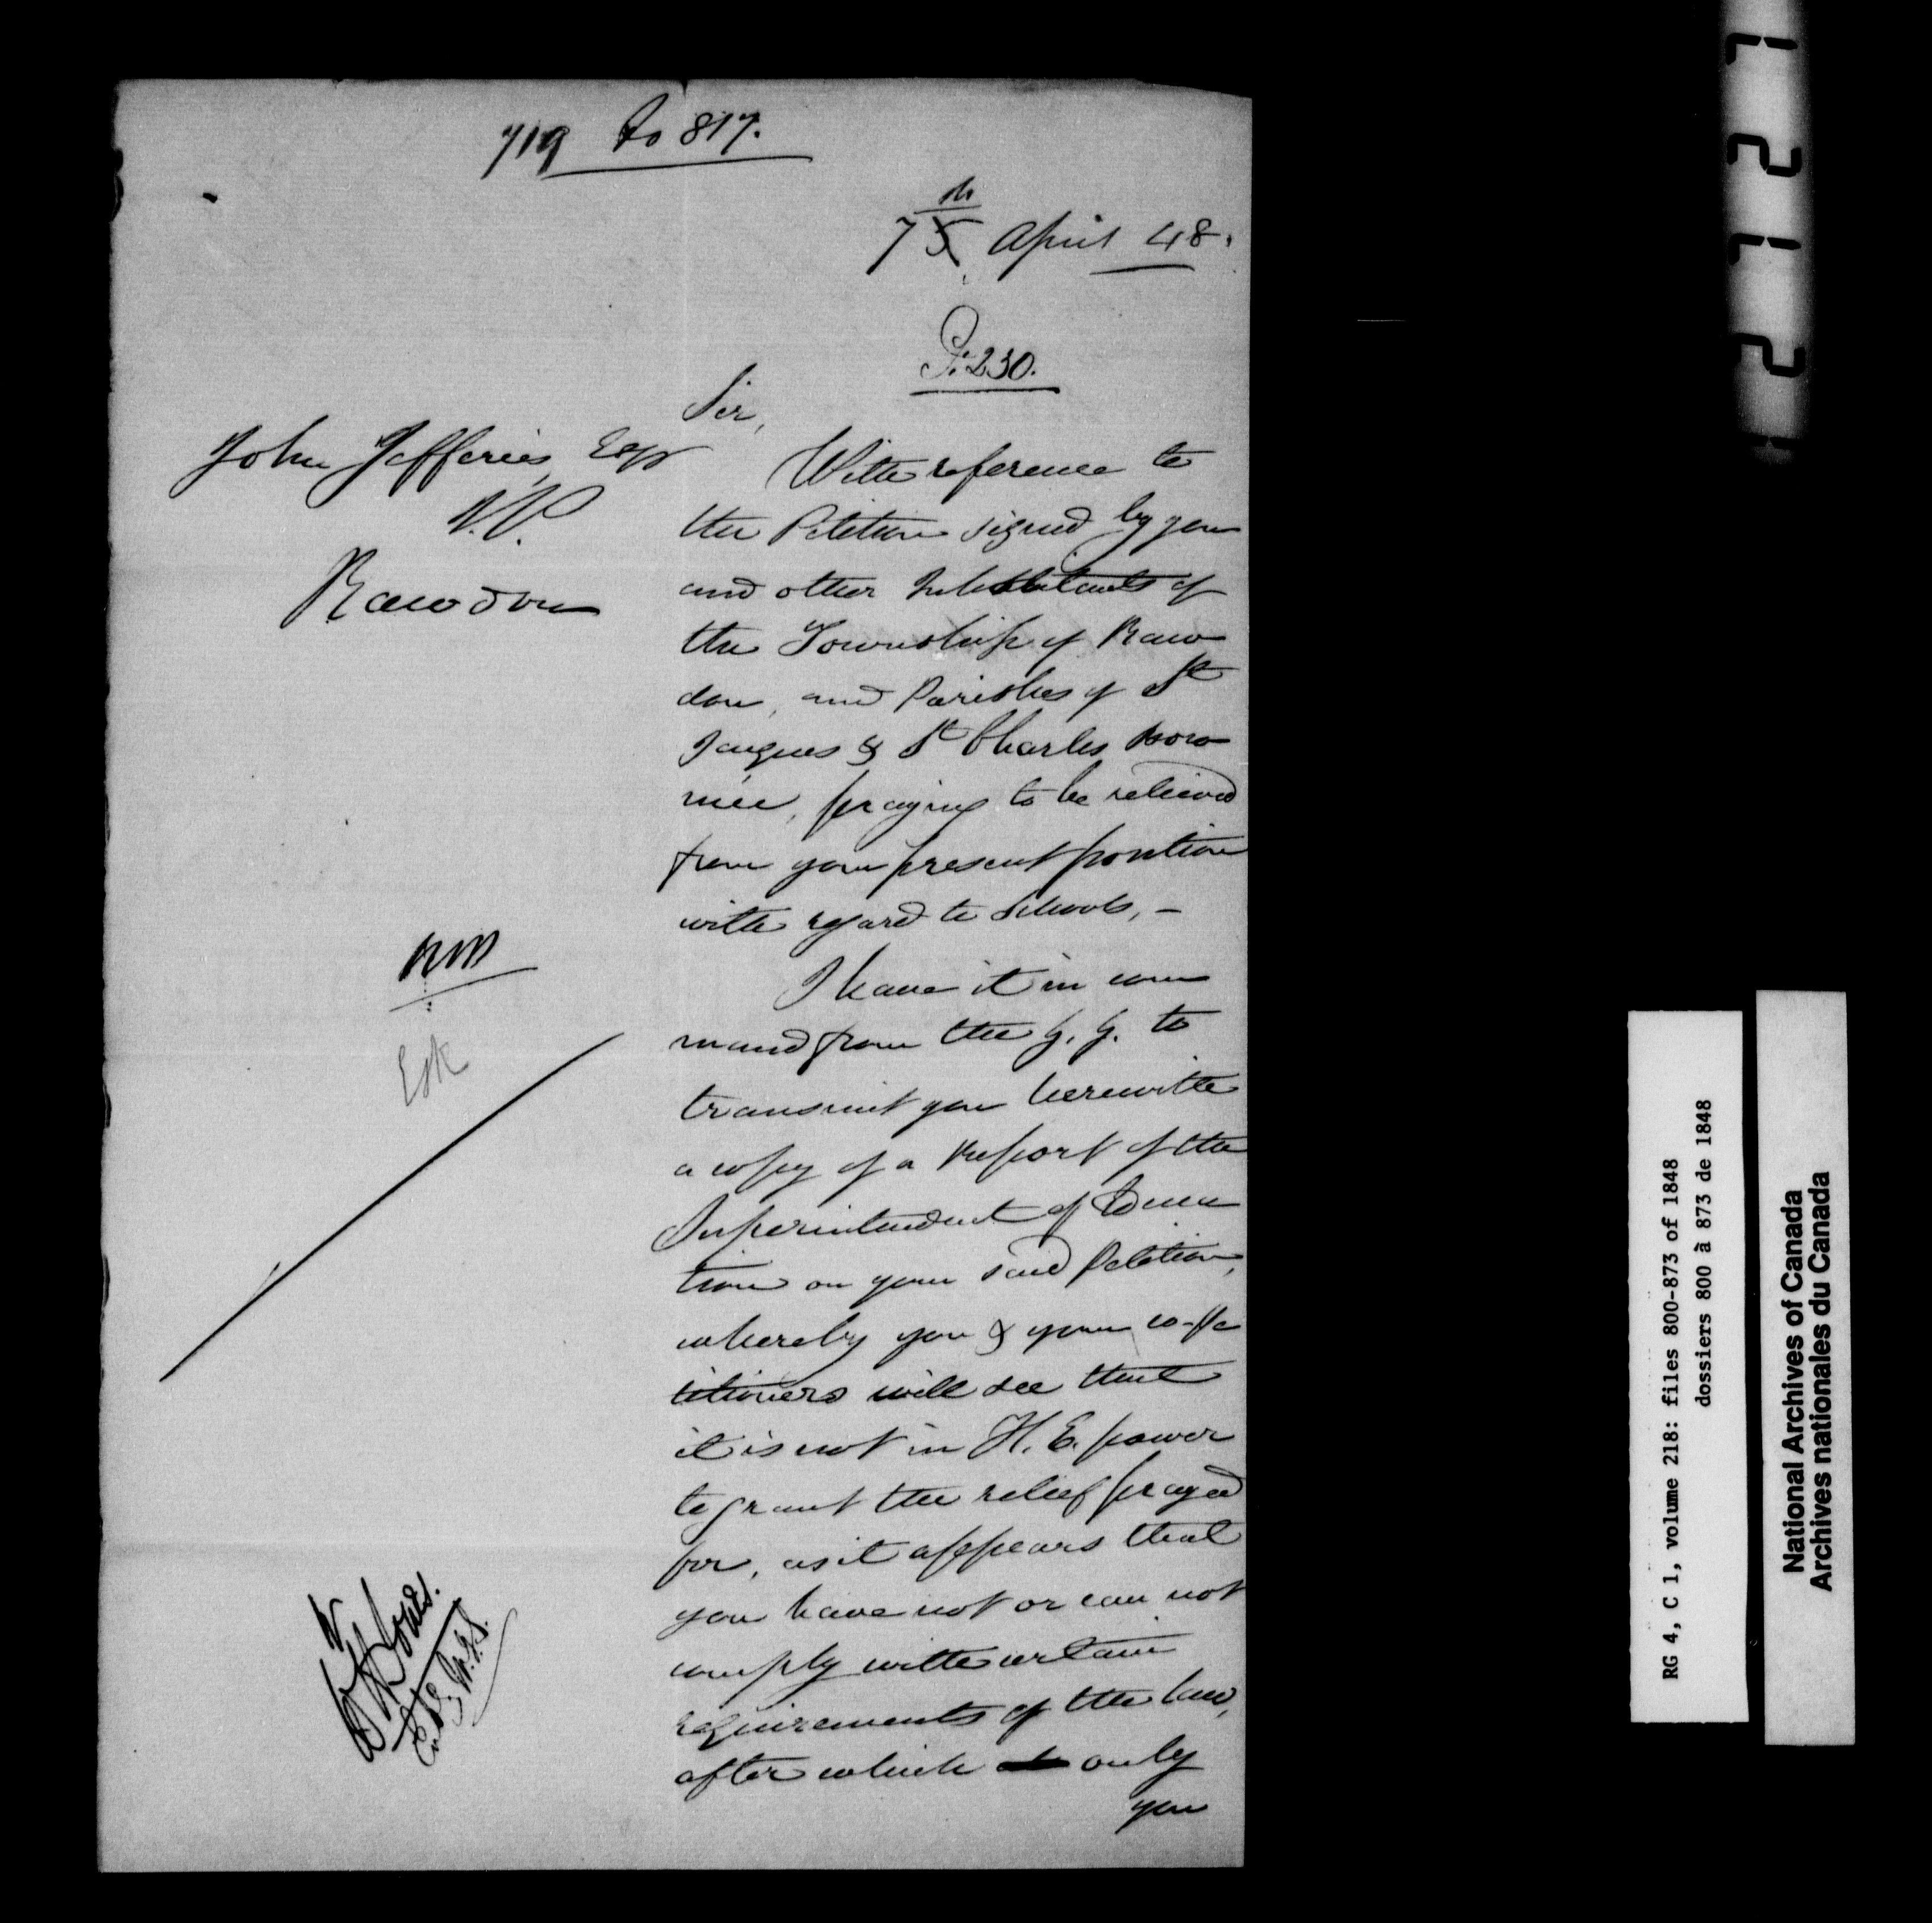 719 to 817.
7th 5 April 48.
P. 230.
Sir,
John Jefferies, Esqr
N.P.
Rawdon
With reference to
the Petition signed by you
and other Inhabitants of
the Township of Raw
don, and Parishes of St
Jacques & St Charles Boro
mée, praying to be relieved
from your present position
with regard to Schools, –
I have it in com
mand from the G. G. to
transmit you herewith
a copy of a Report of the
Superintendent of Educa
tion on your said Petition,
whereby you & your co-Pe
titioners will see that
it is not in H. E. power
to grant the relief prayed
for, as it appears that
you have not or can not
comply with certain
requirements of the law,
after which only
you
RG 4, C 1, volume 218: files 800-873 of 1848
dossiers 800 à 873 de 1848
National Archives of Canada
Archives nationales du Canada